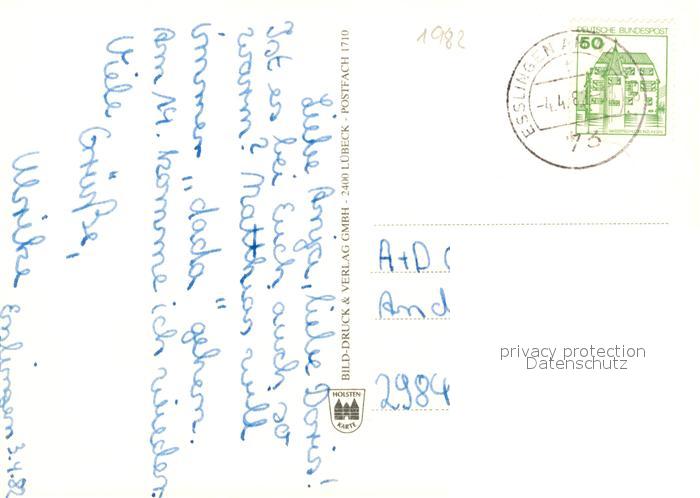 Liebe Anja, liebe Doris!
Ist es bei Euch auch so
warm? Matthias will
immer „dada" gehen.
Am 14. komme ich wieder.
Viele Grüße,
Ulrike
Esslingen 3.4.82
BILD-DRUCK & VERLAG GMBH - 2400 LÜBECK - POSTFACH 1710
HOLSTEN
KARTE
1982
DEUTSCHE BUNDESPOST
50
ESSLINGEN A
-4.4.8
73
A+D
And
2984
privacy protection
Datenschutz